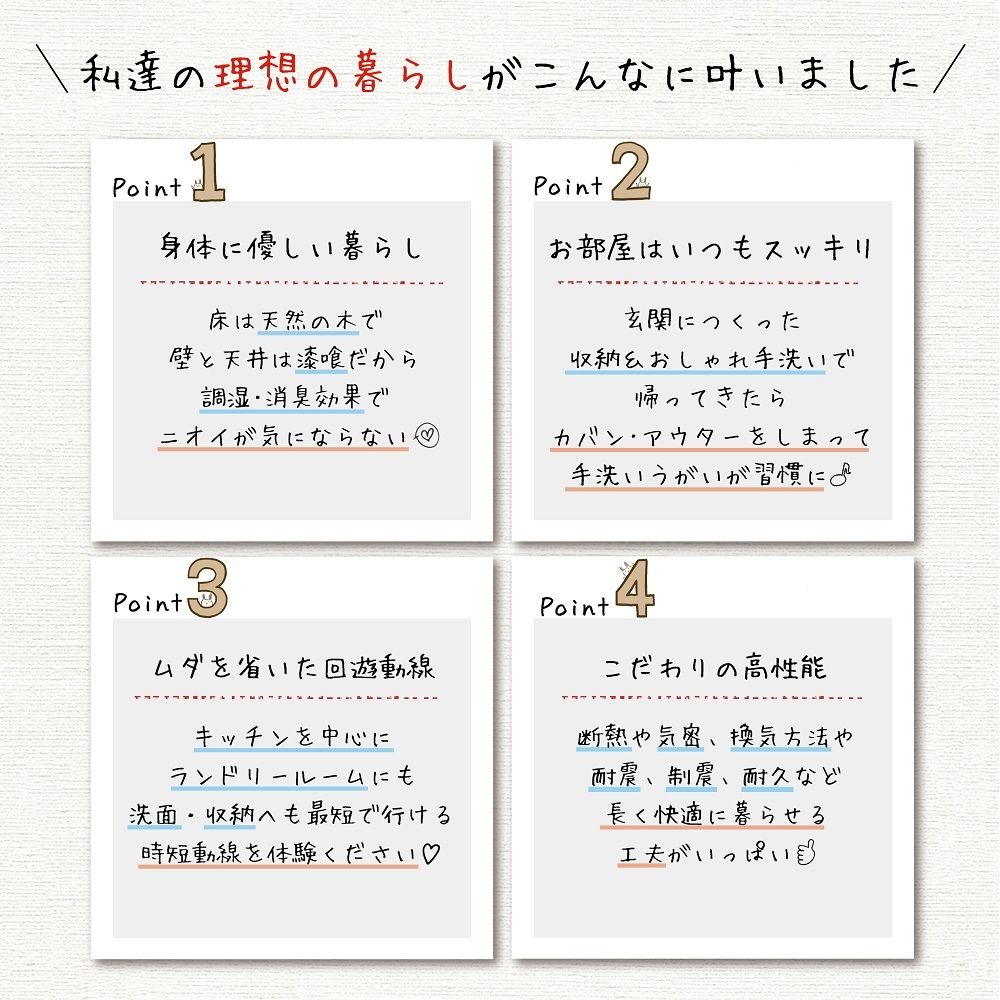 私達の理想の暮らしがこんなに叶いました
Point 1
身体に優しい暮らし
床は天然の木で
壁と天井は漆喰だから
調湿・消臭効果で
ニオイが気にならない
Point 2
お部屋はいつもスッキリ
玄関につくった
収納&おしゃれ手洗いで
帰ってきたら
カバン・アウターをしまって
手洗いうがいが習慣に
Point 3
ムダを省いた回遊動線
キッチンを中心に
ランドリールームにも
洗面・収納へも最短で行ける
時短動線を体験ください♡
Point 4
こだわりの高性能
断熱や気密、換気方法や
耐震、制震、耐久など
長く快適に暮らせる
工夫がいっぱい